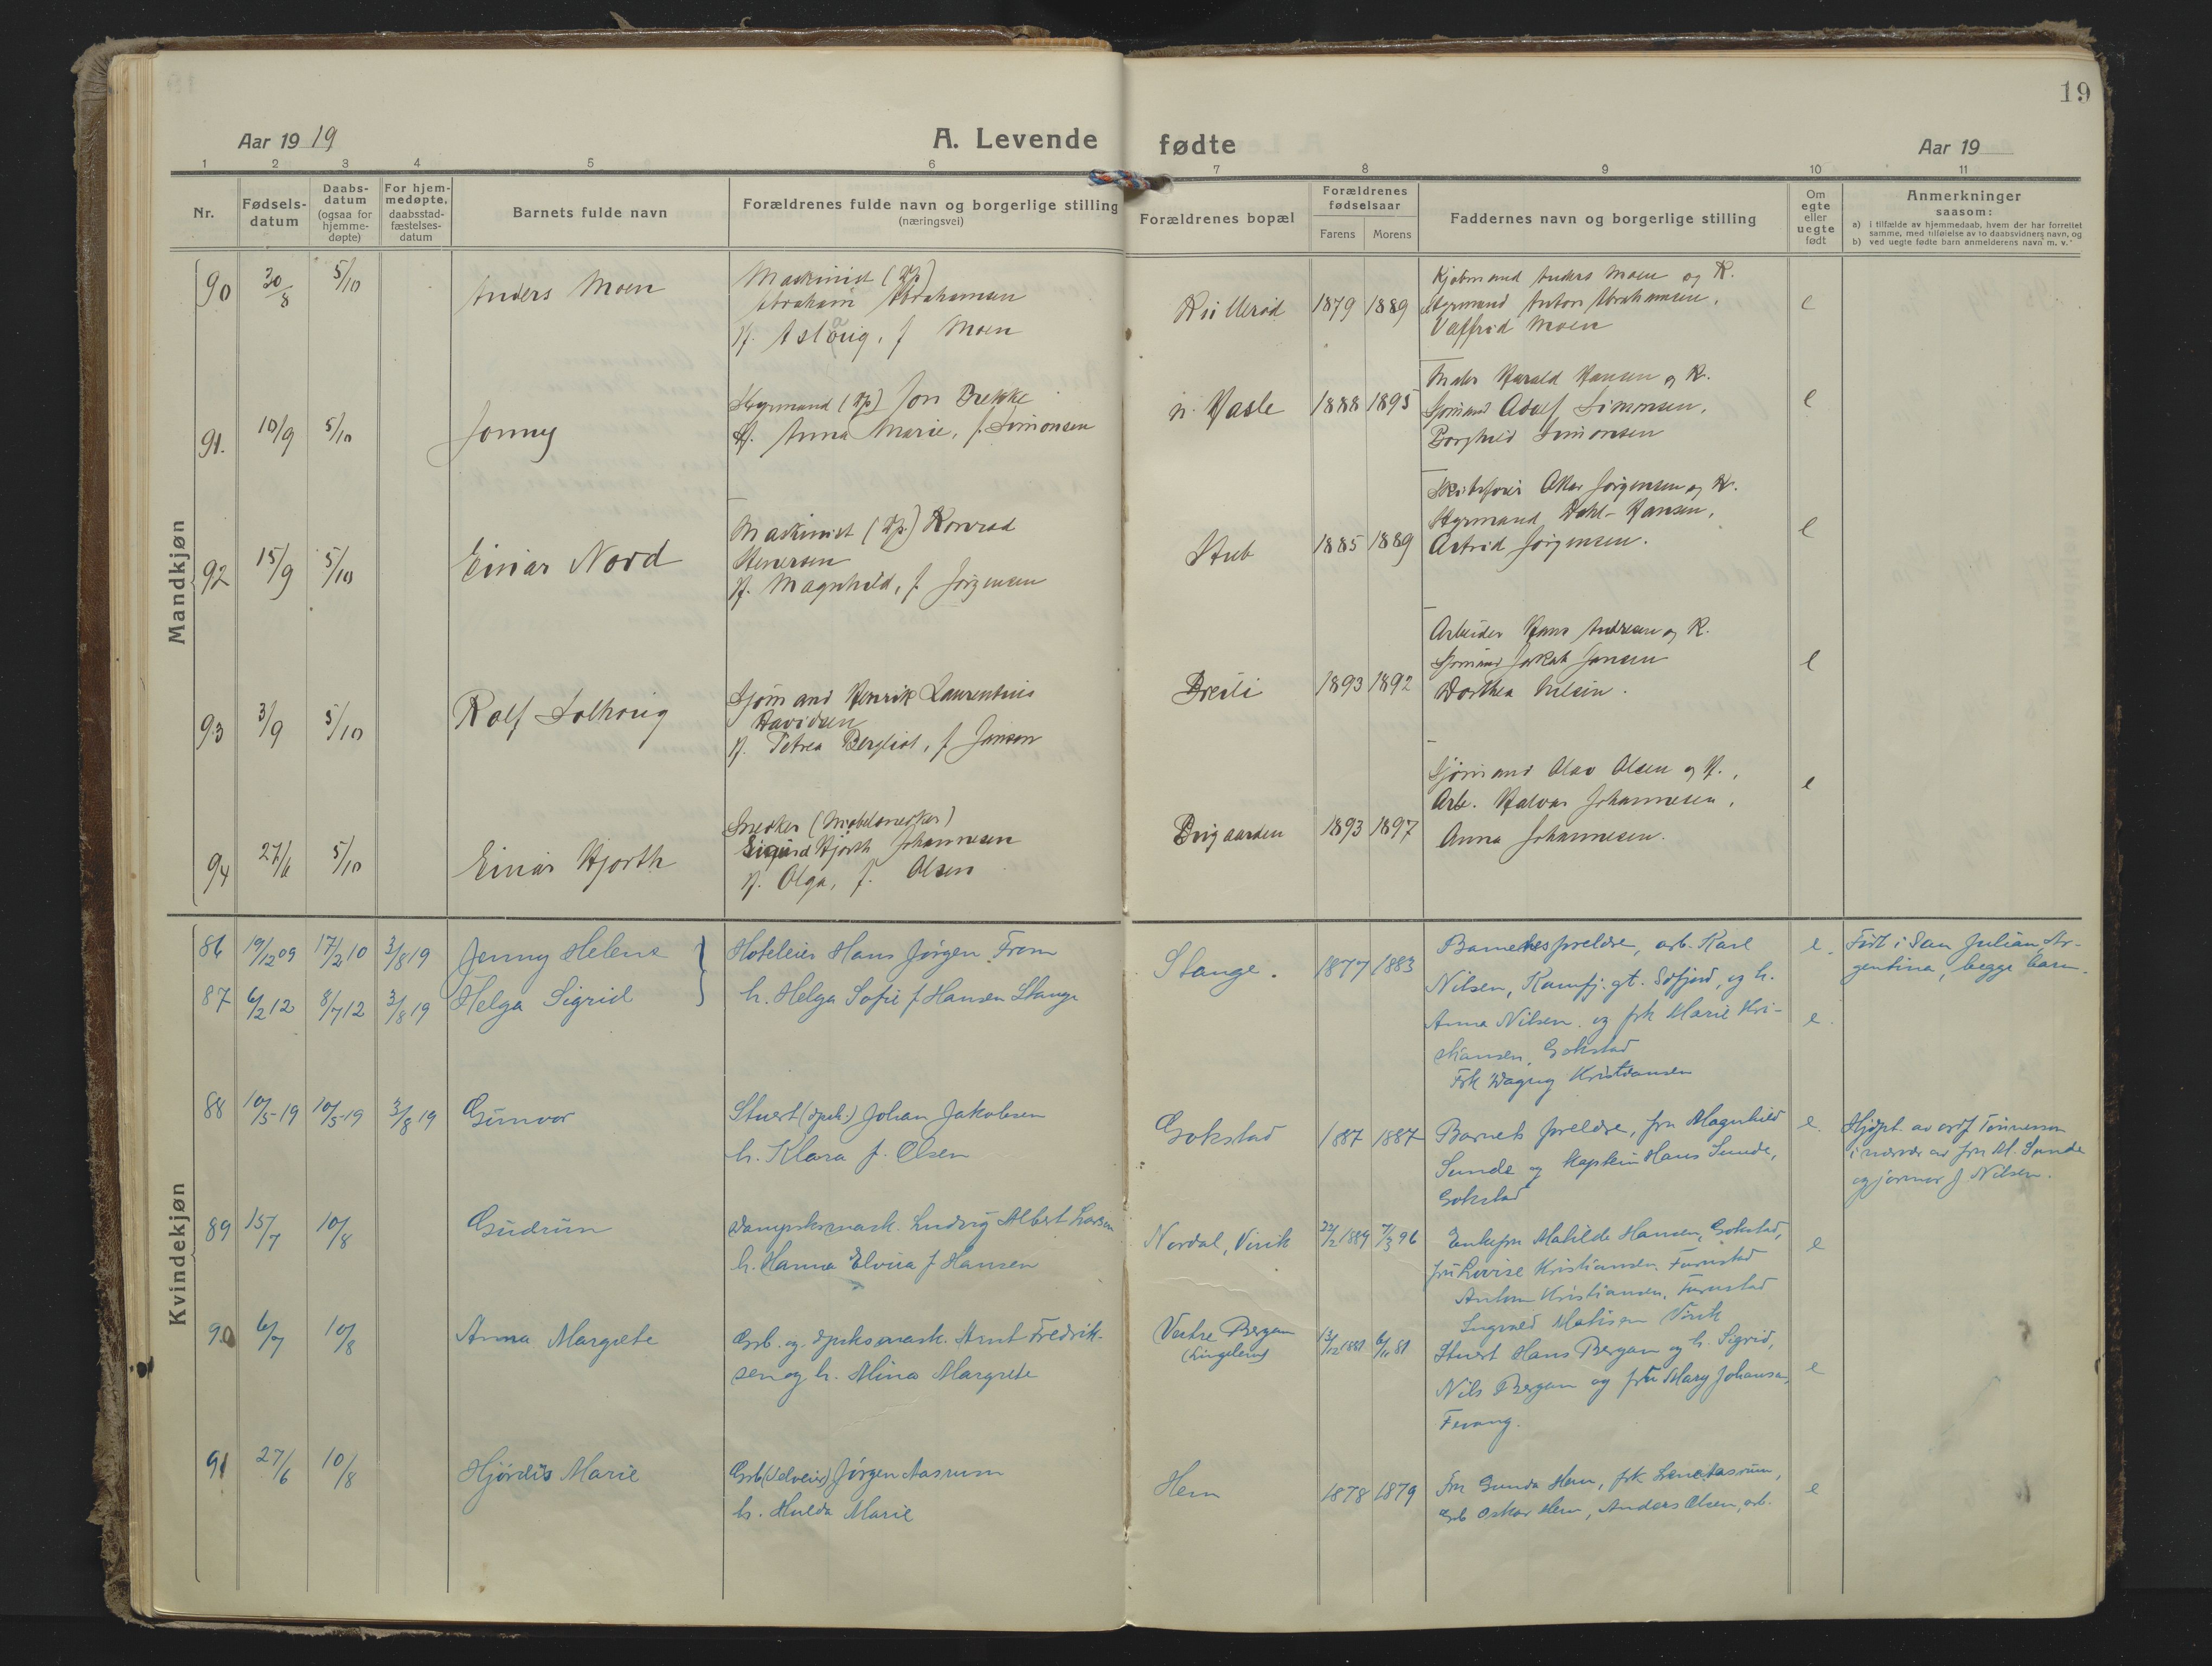 19
Aar 1919
A. Levende fødte
Aar 19
1 2 3 4 5 6 7 8 9 10 11
Nr.
Fødsels-
datum
Daabs-
datum
(ogsaa for
hjemme-
døpte)
For hjem-
medøpte,
daabsstad-
fæstelses-
datum
Barnets fulde navn
Forældrenes fulde navn og borgerlige stilling
(næringsvei)
Forældrenes bopæl
Forældrenes
fødselsaar
Farens Morens
Faddernes navn og borgerlige stilling
Om
egte
eller
uegte
født
Anmerkninger
saasom:
a) i tilfælde av hjemmedaab, hvem der har forrettet
samme, med tilføielse av to daabsvidners navn, og
b) ved uegte fødte barn anmelderens navn m. v.
Mandkjøn
90 30/8 5/10 Anders Moen
Maskinist (Hp)
Abraham Abrahamsen
H. Aslaug, f. Moen
1879 1889
Kjøbmand Anders Moen og K.
Styrmand Anton Abrahamsen,
Valfrid Moen
e
91. 10/9 5/10 Jonny
Styrmand (Hp) Jon Brekke
H. Anna Marie, f. Simonsen
n. Hasle 1888 1895
Maler Harald Hansen og K.
Sjømand Adolf Simonsen,
Borghild Simonsen
e
92 15/9 5/10 Einar Nord
Maskinist (Hp.) Konrad
Stenersen
H. Magnhild, f. Jørgensen
Stub 1885 1889
Jørgensen og K.
Styrmand Dahl-Hansen,
Astrid Jørgensen.
e
93 3/9 5/10 Rolf Solhoug
Sjømand Henrik Laurentius
Davidsen
H. Petrea Bergliot, f. Jonson
Breili 1893 1892
Arbeider Hans Andresen og K.
Sjømand Jakob Jensen
Dorthea Nilsen.
e
94 27/6 5/10 Einar Hjorth
Snedker (Møbelsnedker)
Sigurd Hjorth Johannesen
H. Olga, f. Olsen
Brigaarden 1893 1897
Sjømand Olav Olsen og H.,
Arb. Halvor Johannesen,
Anna Johannesen.
e
Kvindekjøn
86 19/12 09 17/2 10 3/8 19 Jenny Helene
87 6/2 12 8/7 12 3/8 19 Helga Sigrid
Hoteleier Hans Jørgen From
h. Helga Sofie f. Hansen Stange
Stange. 1877 1883
Barnets forældre, arb. Karl
Nilsen, Kamfj. gt. Sdfjord, og h.
Anna Nilsen og frk Marie Kri-
stiansen, Gokstad
Frk Dagny Kristiansen
e.
e.
Født i San Julian Ar-
gentina, begge barn.
88 10/5-19 10/5-19 3/8 19 Gunvor
Stuert (spek.) Johan Jakobsen
h. Klara f. Olsen
Gokstad 1887 1887
Barnets forældre, fru Magnhild
Sunde og kaptein Hans Sunde,
Gokstad
e.
Hjdpt. av ordf Tønnessen
i nærvær av fru M. Sunde
og jormor J Nilsen.
89 15/7 10/8 Gudrun
Dampsksmask. Ludvig Albert Larsen
h. Hanna Elvira f Hansen
Nordal, Virik 22/2 1889 7/3 96
Enkefru Matilde Hansen, Gokstad,
fru Lovise Kristiansen, Furustad
Anton Kristiansen, Furustad
Ingvald Mathisen Virik
e
90 6/7 10/8 Anna Margrete
Grb. og dpsksmask. Arnt Fredrik-
sen og h. Alina Margrete
Vestre Bergan
(Lingelem) 13/12 1881 6/11 81
Stuert Hans Bergan og h. Sigrid,
Nils Bergan og fru Mary Johansen,
Fevang.
e
91 27/6 10/8 Hjørdis Marie
Grb (Selveier) Jørgen Aasrum
h. Hulda Marie
Hem 1878 1879
Fru Gunda Hem, frk Lena Aasrum,
Grb Oskar Hem, Anders Olsen, arb.
e